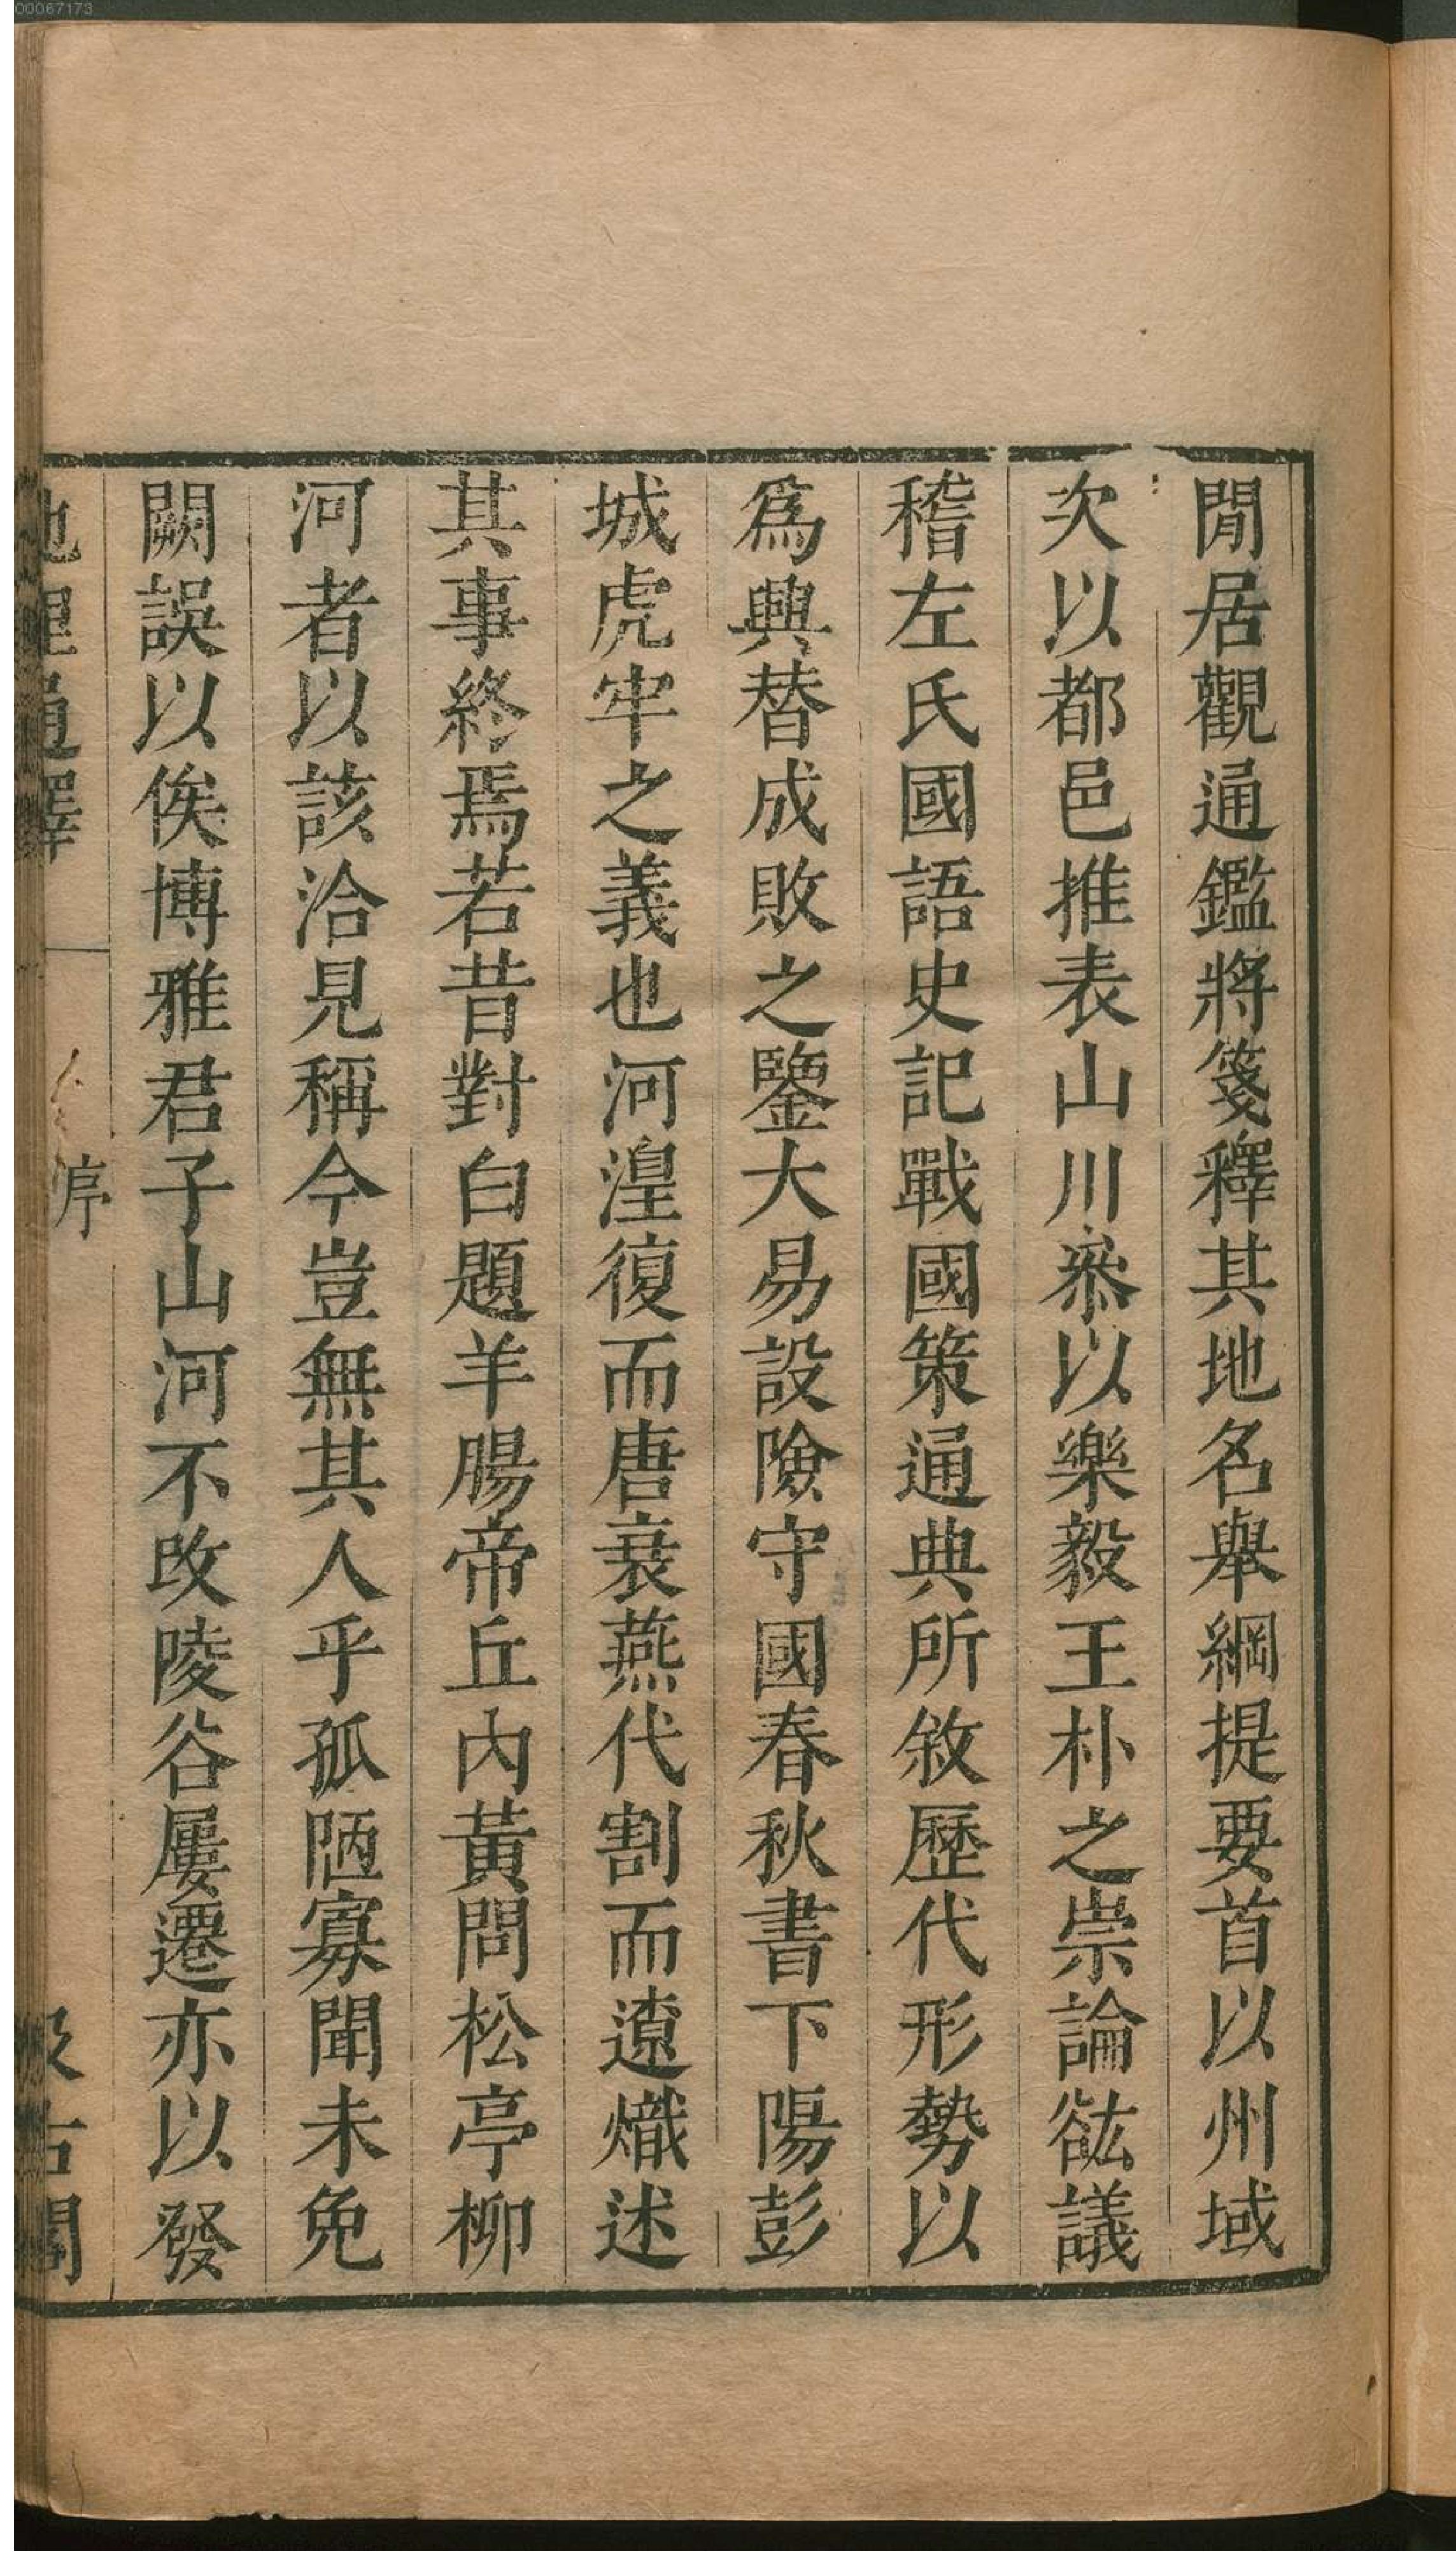 閒居觀通鑑將箋釋其地名舉綱提要首以州域
次以都邑推表山川叅以樂毅王朴之崇論谹議
稽左氏國語史記戰國策通典所敘歷代形勢以
爲興替成敗之鑒大易設險守國春秋書下陽彭
城虎牢之義也河湟復而唐衰燕代割而遼熾述
其事終焉若昔對白題羊腸帝丘內黃問松亭柳
河者以該洽見稱今豈無其人乎孤陋寡聞未免
闕誤以俟博雅君子山河不改陵谷屢遷亦以發
地理通釋 序 汲古閣
00067173